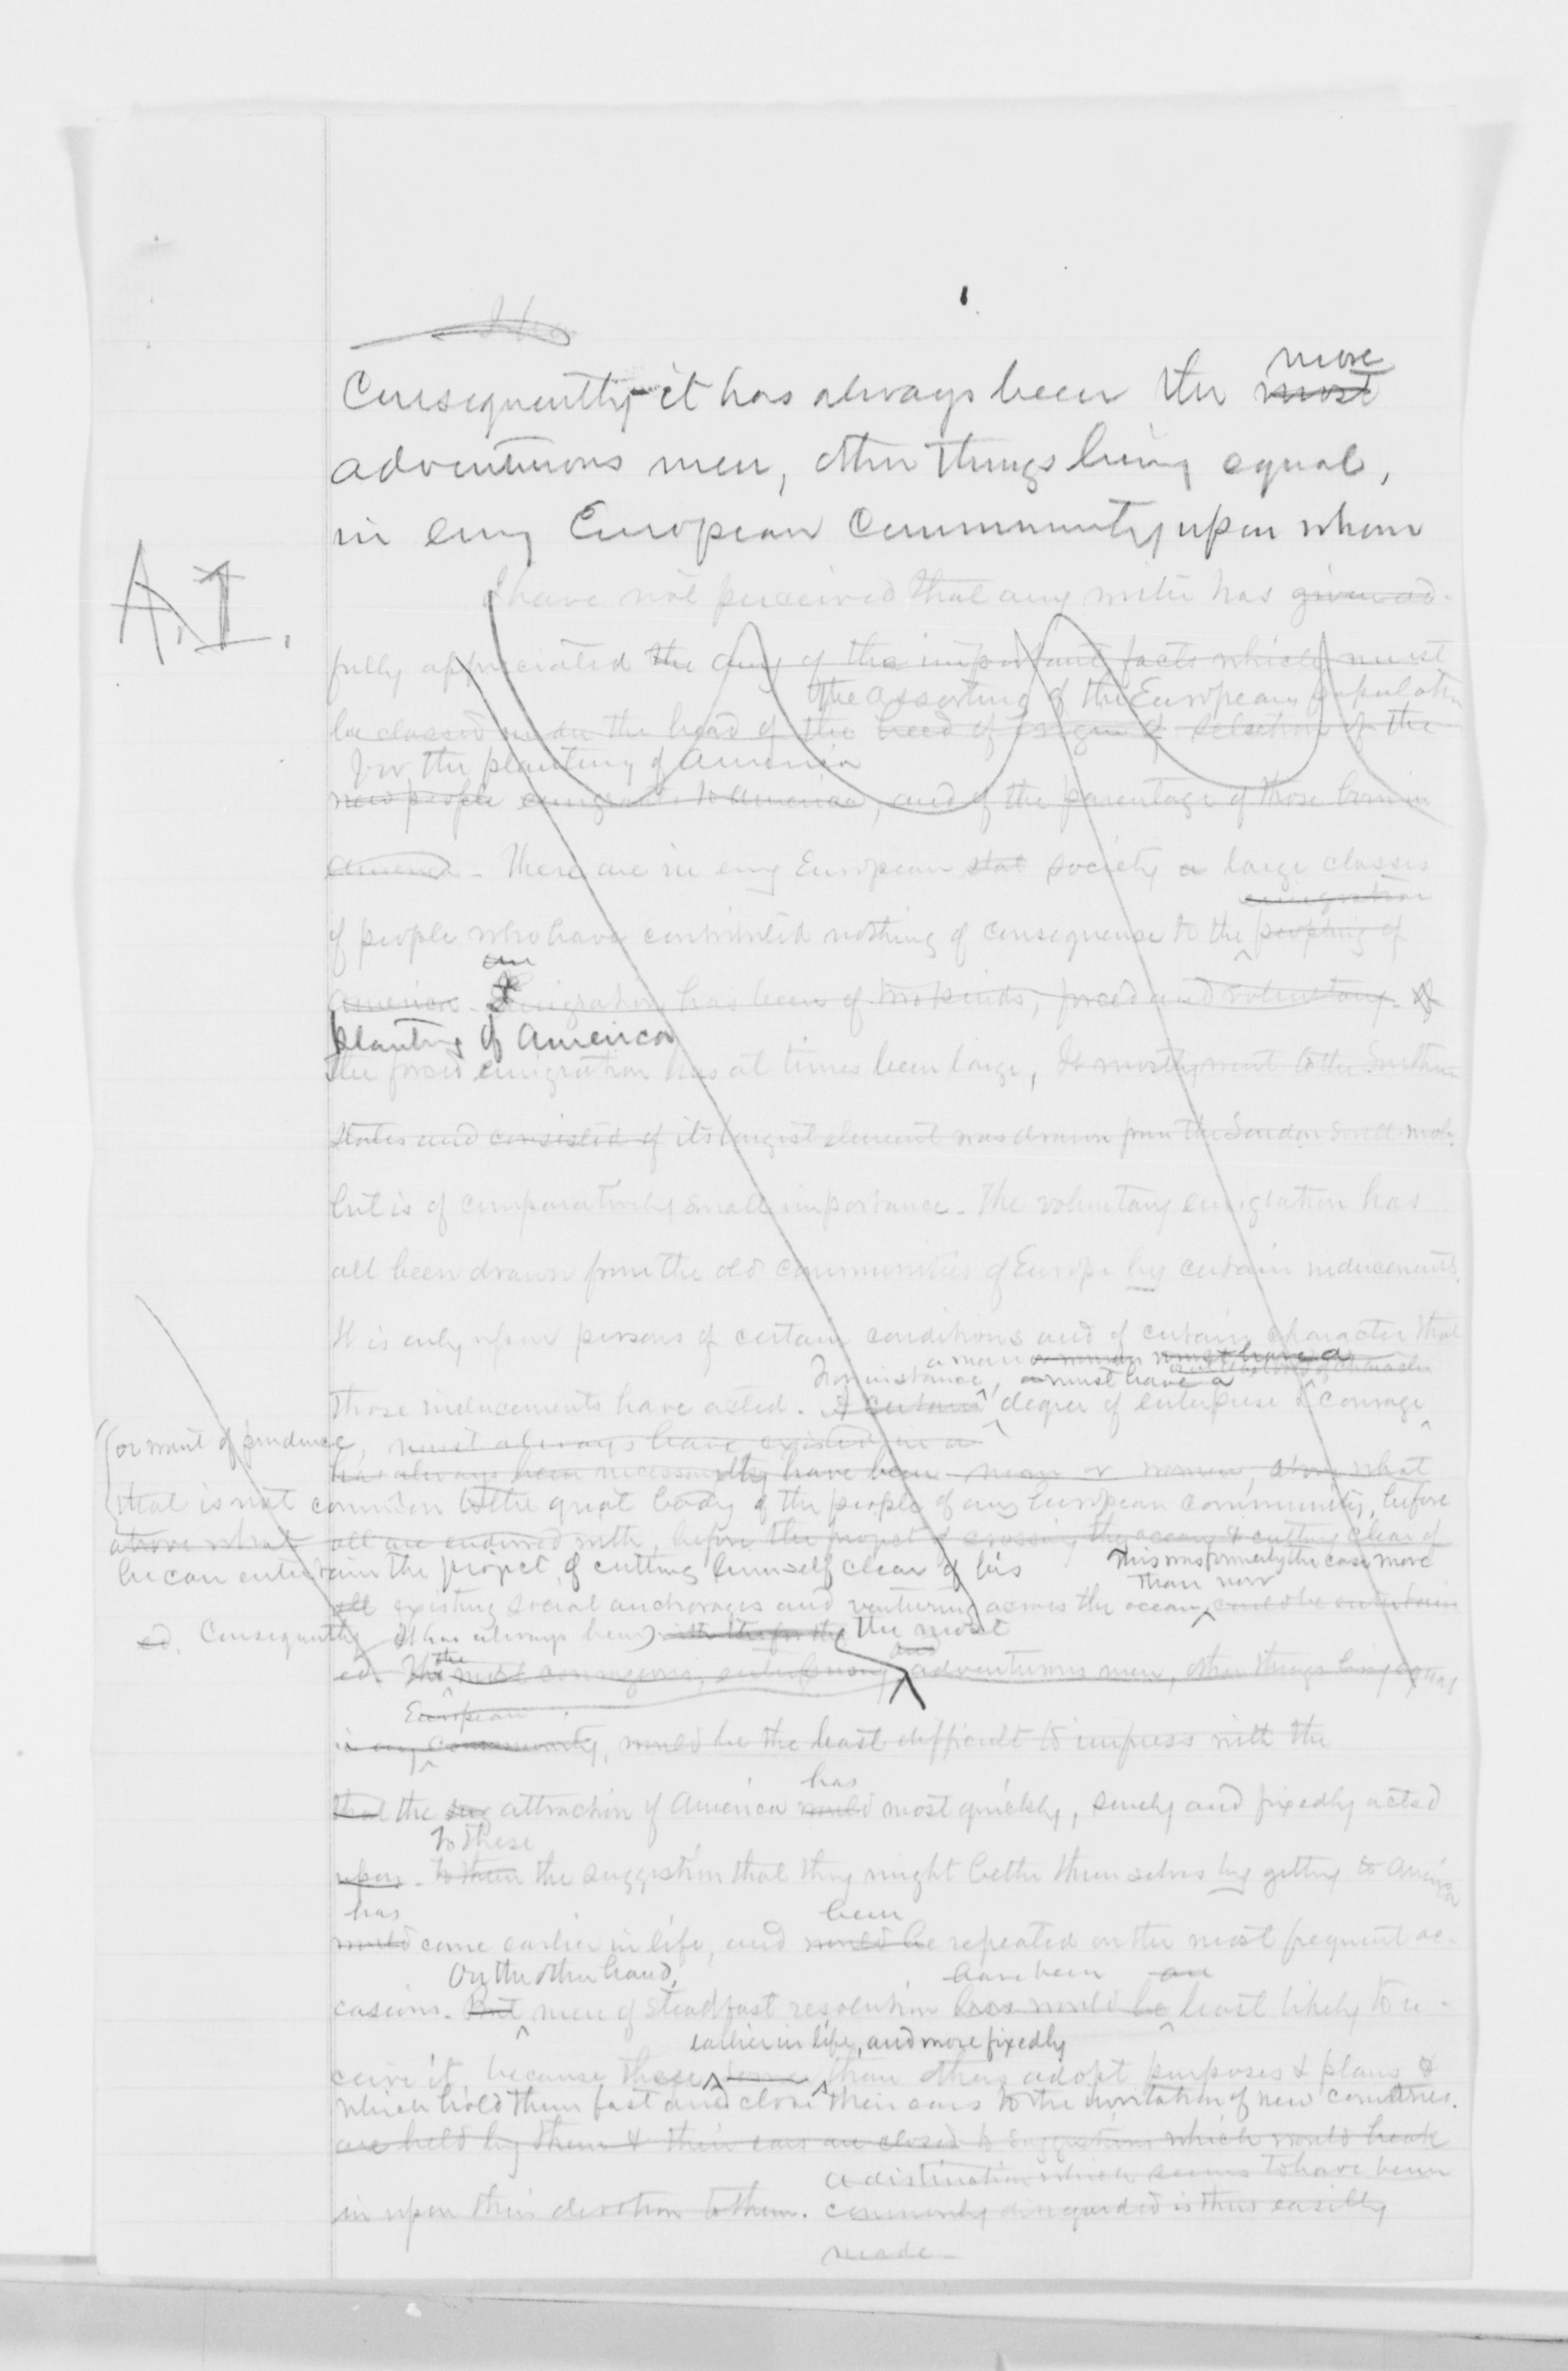 more
Consequently it has always been the most
adventurous men, other things being equal,
in any European community upon whom
A.I.
I have not perceived that any writer has given ad-
fully appreciated the any of the important facts which must
the assorting of the European population
be classed under the head of the breed of origin of selection of the
for the planting of America
new people emigrant to America, and of the parentage of those born in
America. There are in any European stat society a large classes
emigration
of people who have contributed nothing of consequence to the peopling of
America. Emigration has been of two kinds, forced and voluntary.
planting of America
The forced emigration has at times been large, It mostly went to the Southern
States and consisted of its largest element was drawn from the London swell-mob.
but is of comparatively small importance. The voluntary emigration has
all been drawn from the old communities of Europe by certain inducements.
It is only upon persons of certain conditions and of certain character that
a man or woman must have a
For instance, must have a
those inducements have acted. A certain degree of enterprise & courage
(or want of prudence, must always have existed in a
has always been necessarily have been man or woman, above what
that is not common to the great body of the people of any European community, before
above what all are endowed with, before the project of crossing the ocean & cutting clear of
he can entertain the project of cutting himself clear of his
This was formerly the case more
than now
all existing social anchorages and venturing across the ocean, could be entertain
ed. Consequently it has always been the most
ed. The the most courageous, enterprising and adventurous men, other things being equal
European
in any community, would be the least difficult to impress with the
has
that the attraction of America would most quickly, surely and fixedly acted
To these
upon. To them the suggestion that they might better themselves by getting to America
has been
would come earlier in life, and would be repeated on the most frequent oc-
On the other hand, have been
casions. But men of steadfast resolution would be least likely to re-
earlier in life, and more fixedly
ceive it, because these some than others adopt purposes & plans &
which hold them fast and close their ears to the invitation of new countries.
are held by them & their ears are closed to suggestions which would break
a distinction which seems to have been
in upon their devotion to them. commonly disregarded is thus easily
made.